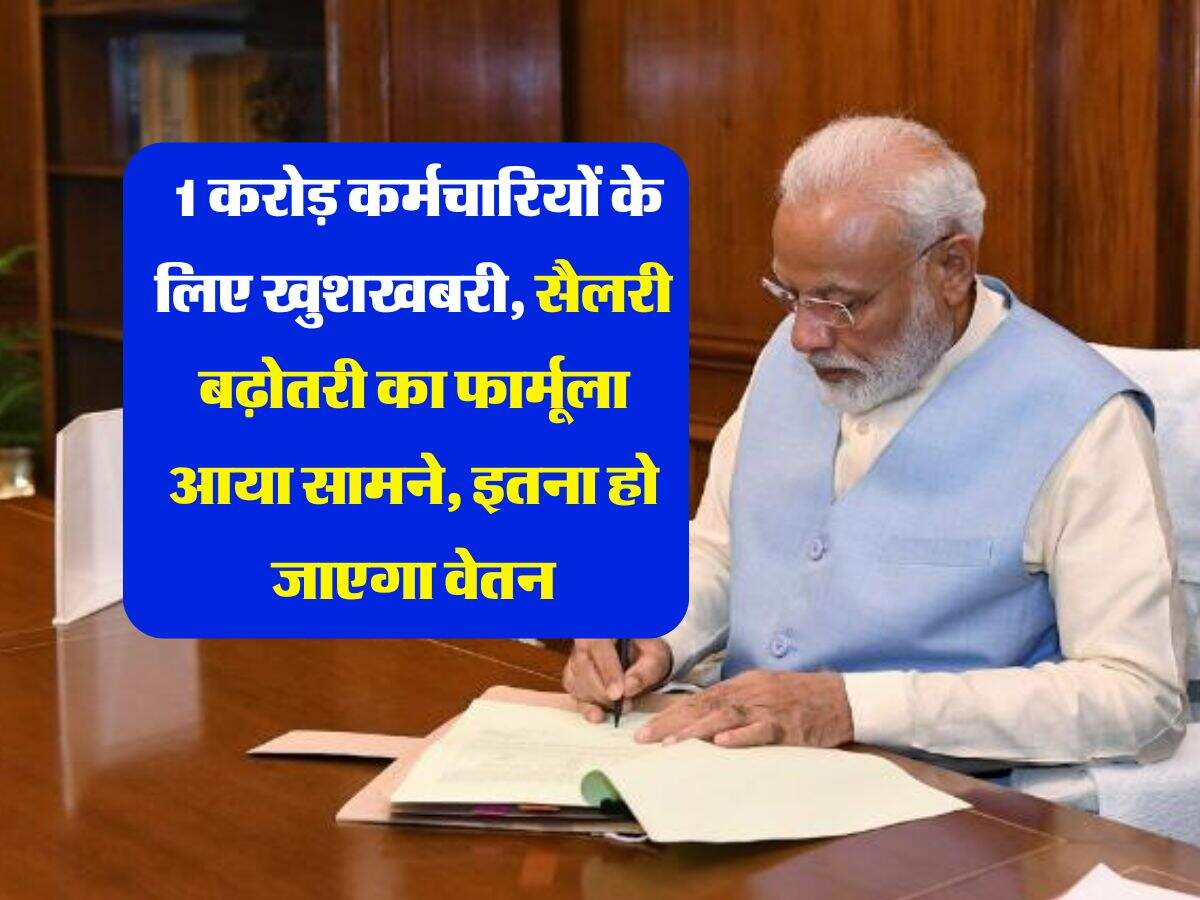 1 करोड़ कर्मचारियों के
लिए खुशखबरी, सैलरी
बढ़ोतरी का फार्मूला
आया सामने, इतना हो
जाएगा वेतन